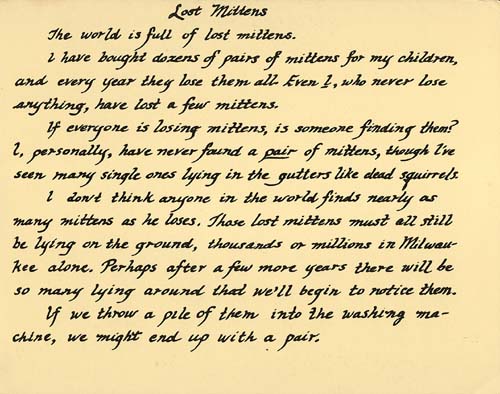 Lost Mittens
The world is full of lost mittens.
I have bought dozens of pairs of mittens for my children,
and every year they lose them all. Even I, who never lose
anything, have lost a few mittens.
If everyone is losing mittens, is someone finding them?
I, personally, have never found a pair of mittens, though I've
seen many single ones lying in the gutters like dead squirrels.
I don't think anyone in the world finds nearly as
many mittens as he loses. Those lost mittens must all still
be lying on the ground, thousands or millions in Milwau-
kee alone. Perhaps after a few more years there will be
so many lying around that we'll begin to notice them.
If we throw a pile of them into the washing ma-
chine, we might end up with a pair.